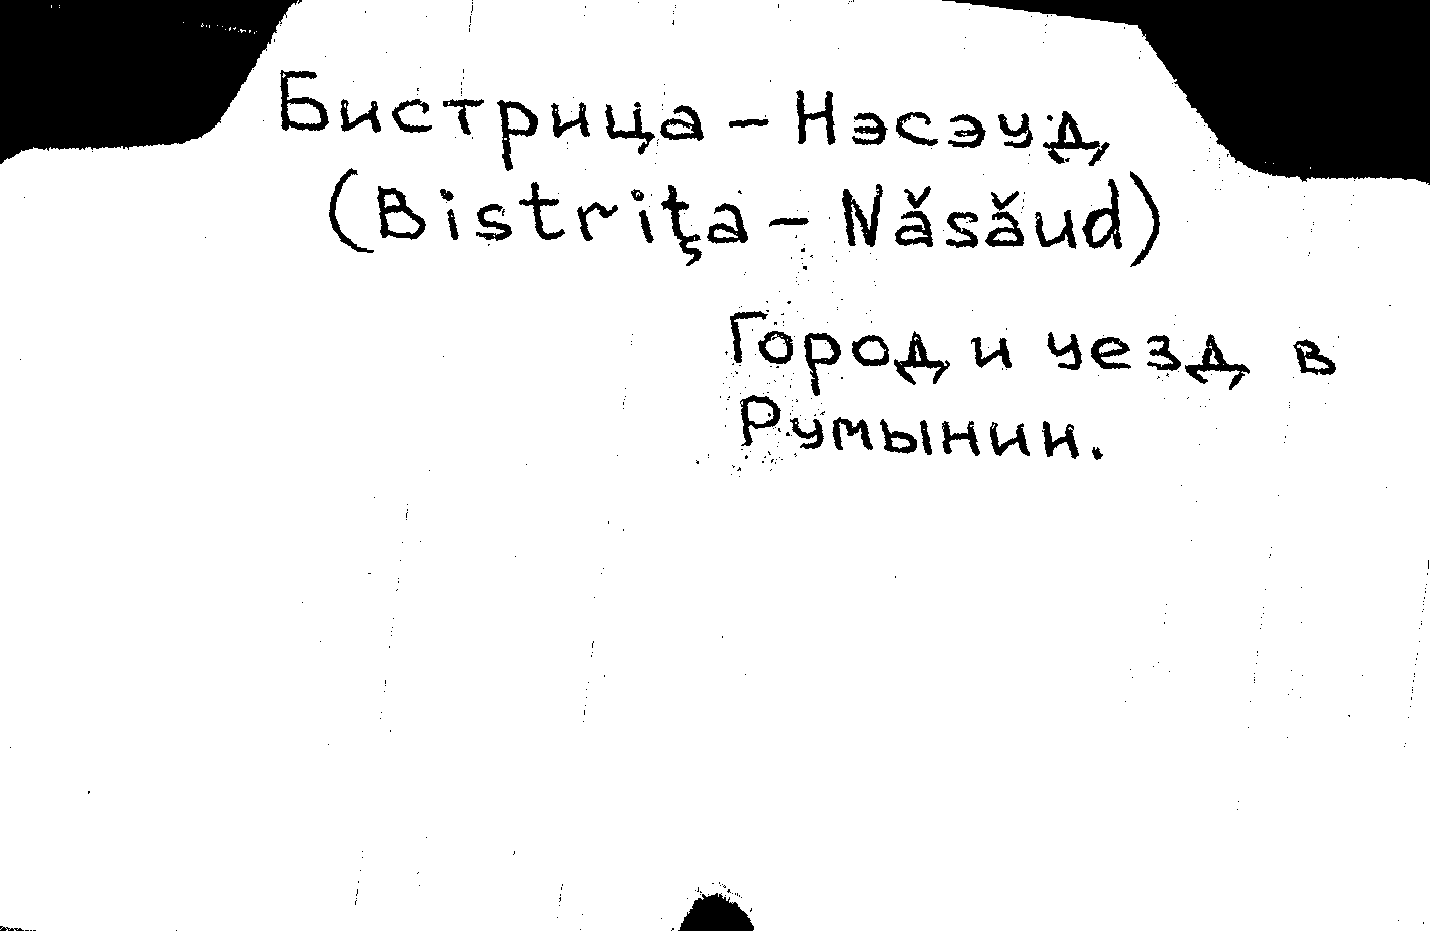 Бистрица - Нэсэуд
(Bistriţa - Năsăud)
Город и уезд в
Румынии.